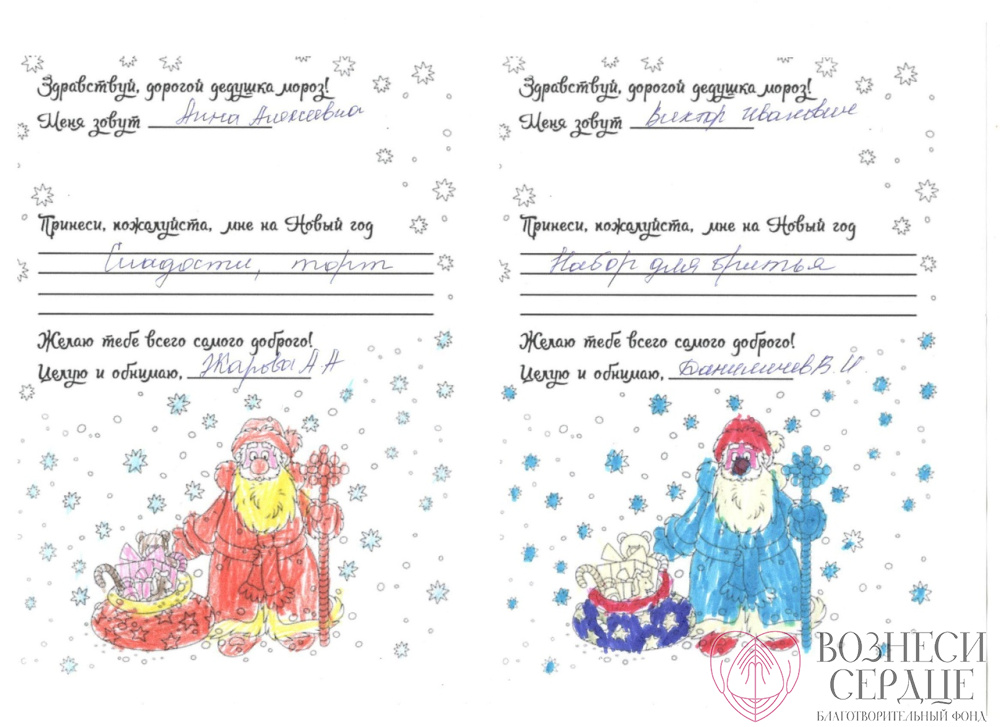 Здравствуй, дорогой дедушка мороз!
Меня зовут Анна Алексеевна
Принеси, пожалуйста, мне на Новый год
Сладости, торт
Желаю тебе всего самого доброго!
Целую и обнимаю, Жарова А А
Здравствуй, дорогой дедушка мороз!
Меня зовут Виктор Иванович
Принеси, пожалуйста, мне на Новый год
Набор для бритья
Желаю тебе всего самого доброго!
Целую и обнимаю, Данилычев В. И
ВОЗНЕСИ
СЕРДЦЕ
БЛАГОТВОРИТЕЛЬНЫЙ ФОНД